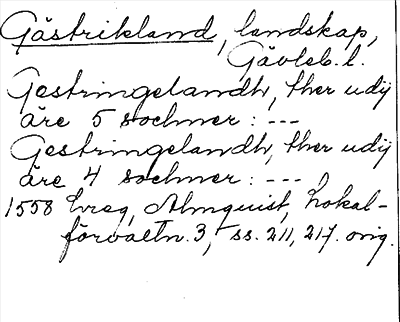 Gästrikland, landskap,
Gävleb. l.
Gestringelandh, ther udij
äre 5 sochner: ---
Gestringelandh, ther udij
äre 4 sochner: ---
1558 Övreg, Almquist, Lokal-
förvaltn. 3, ss. 211, 217. orig.